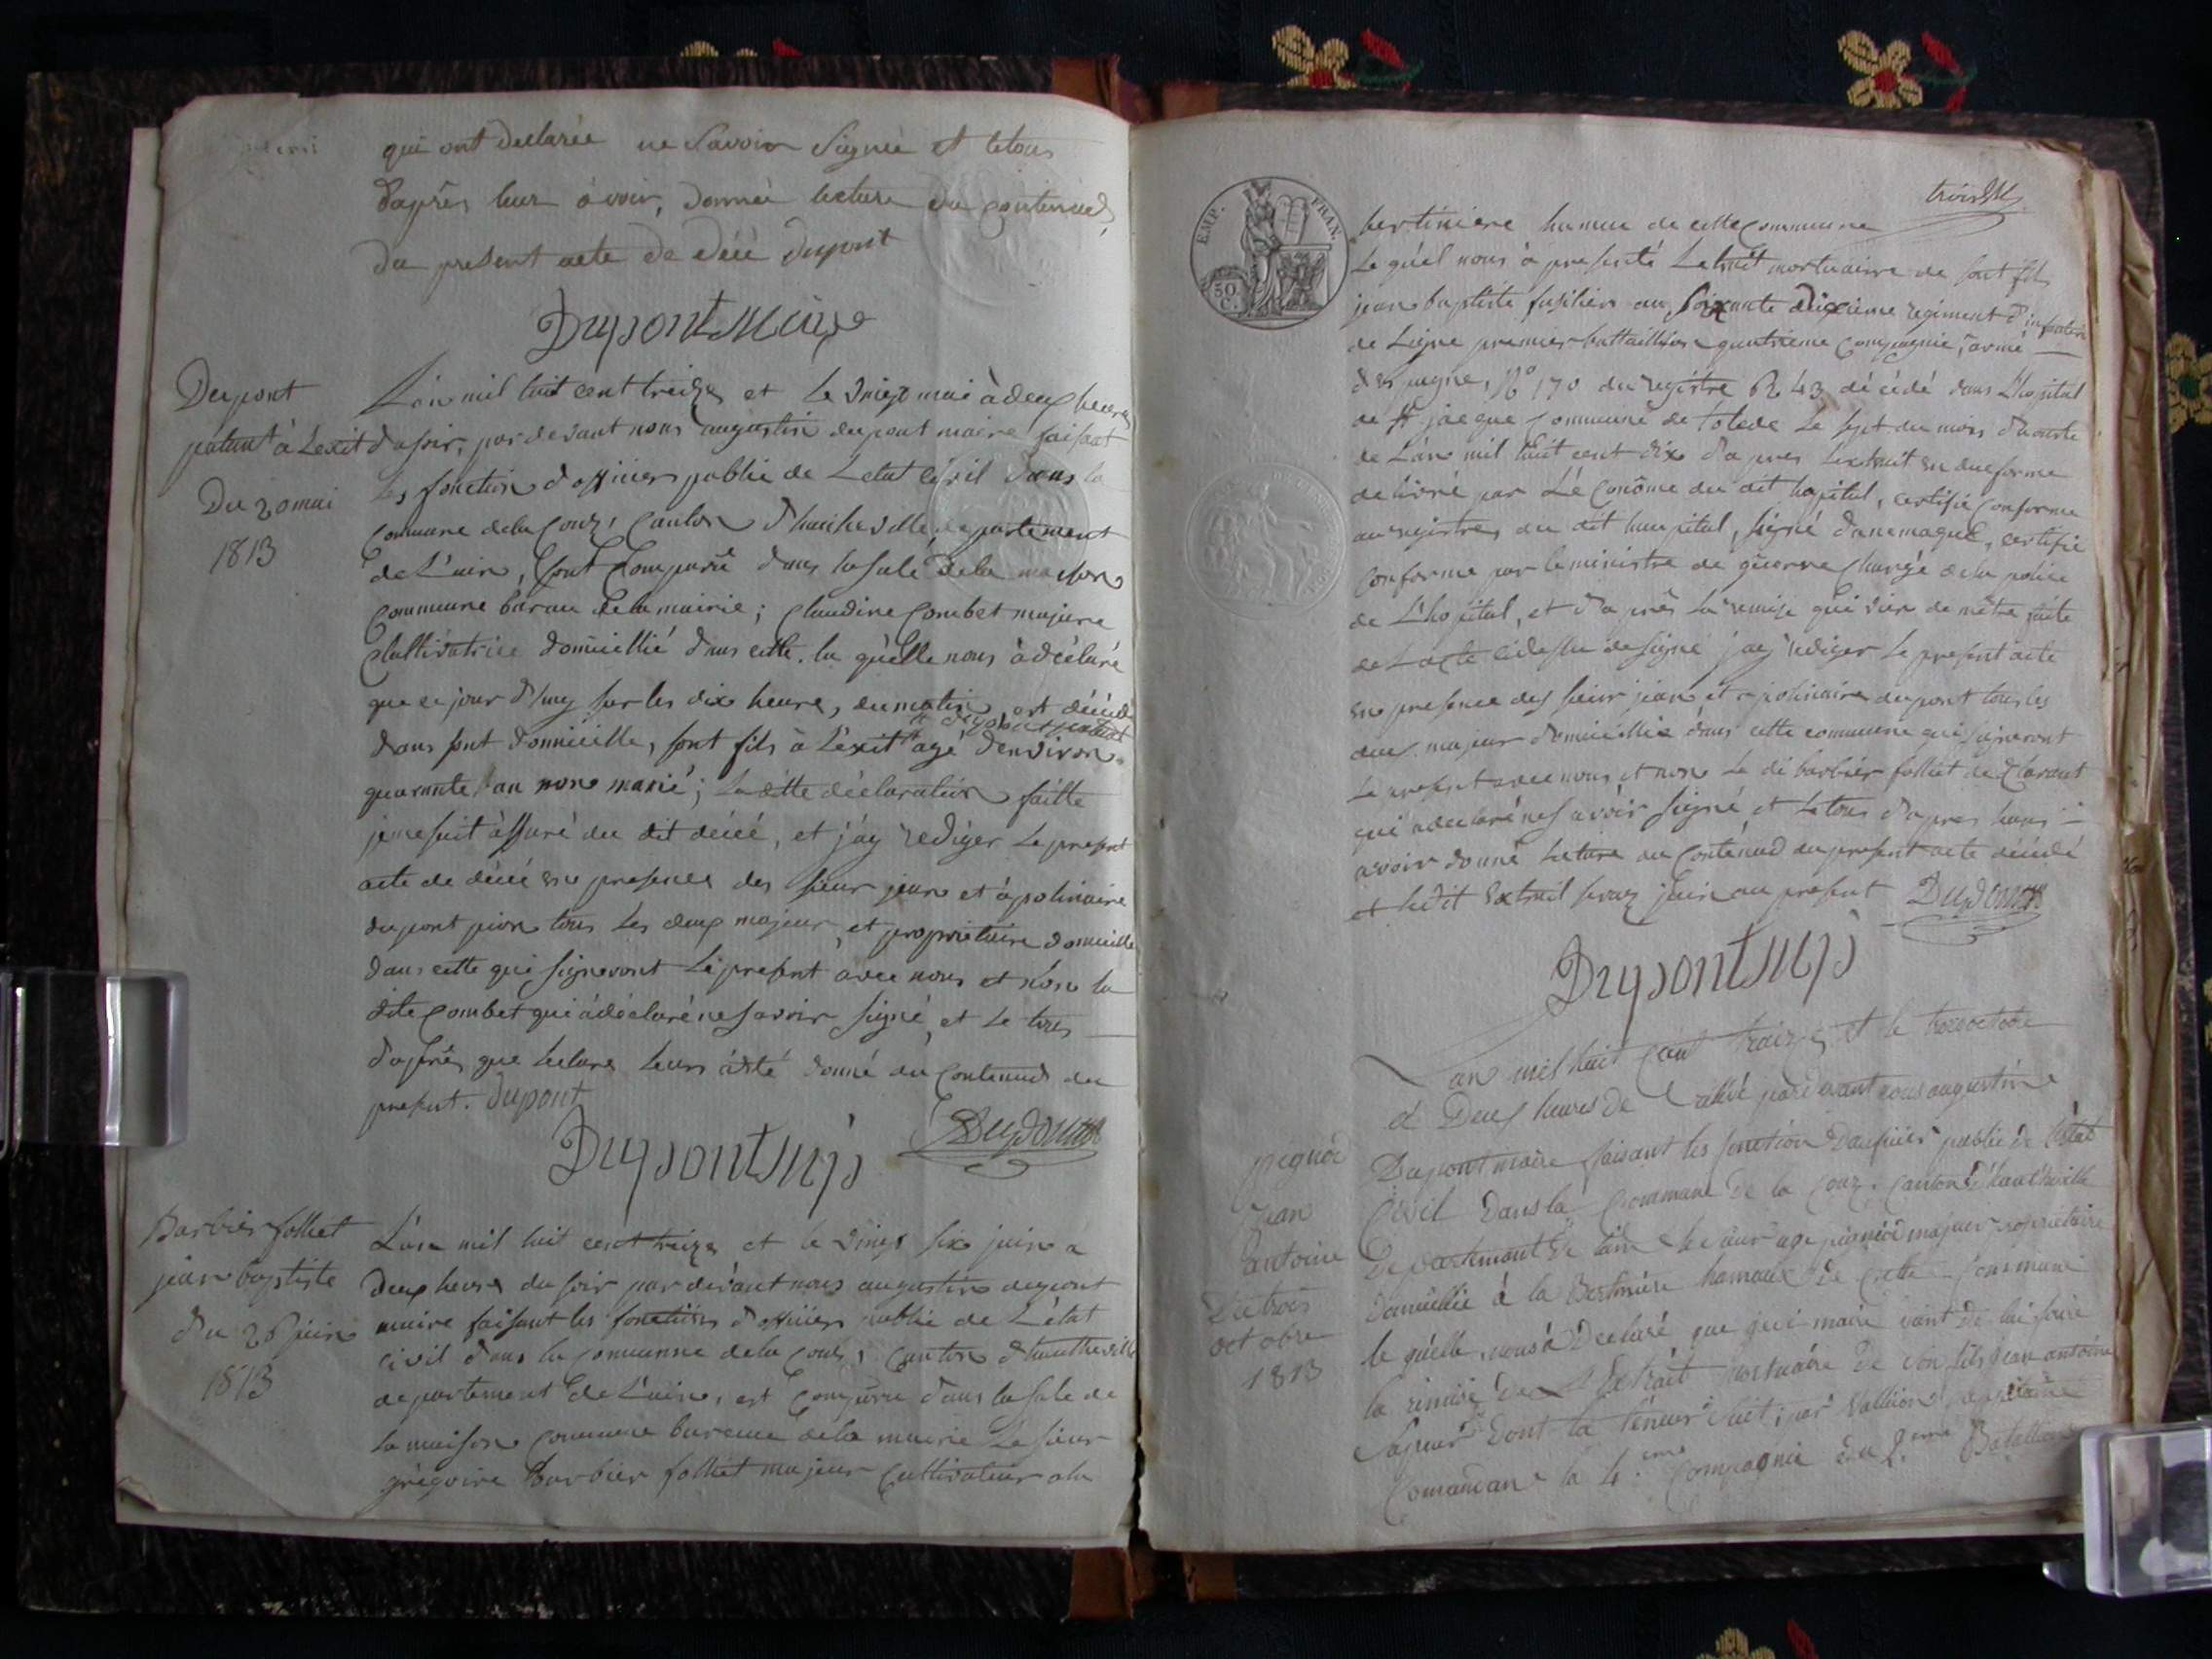 qui ont declarée ne Savoir Signée et letous
d'après leur avoir, donnée lecture du contenud
du present acte de décé dupont
Dupont Maire
Dupont
patant à L'exit
Du 20 mai
1813
L'an mil huit cent treize et le vingt mai à deux heures
du soir, par devant nous augustin dupont maire faisant
les fonction d'officier public de L'etat Civil dans la
commune dela Couz, Canton d'hauteville, departement
de L'ain, sont Comparue dans la sale de la maison
commune bureau de la mairie; Claudine Combet majeure
Cultivatrice domicillié dans cette. la quelle nous à déclaré
que ce jour d'huy sur les dix heure, du matin, est décédé
dans sont domicille, sont fils à L'exit agé d'environ
quarante an non marié; la ditte déclaration faitte
je me suit assuré du dit décé, et j'ay rediger le present
acte de décé en presence des sieur jean et apolinaire
dupont pion tous les deux majeur, et proprietaire domicillé
dans cette qui signeront le present avec nous et non la
dite Combet qui à déclaré ne savoir signé, et le tous
d'après que lecture leurs à été donné du Contenud du
present. dupont
Dupont M
Dupont
Barbier folliet
jean baptiste
du 26 juin
1813
L'an mil huit cent treize et le vingt six juin a
deux heures du soir par devant nous augustin dupont
maire faisant les fonctions d'officier public de L'état
civil dans la commune dela Couz, canton d'hauteville
departement de L'ain, est comparu dans la sale de
la maison commune bureau dela mairie Le sieur
grégoire Barbier folliet majeur cultivateur a la
EMP. FRAN.
50 C.
trois
bertiniere hamau de cette commune
Le quel nous à presenté Letrait mortuairre de sont fils
jean baptiste fusilier au soixante dixieme regiment d'infanterie
de Ligne premier battaillion quatrieme Compagnie, armé
d'espagne, N° 170 du registre R 43 décédé dans L'hopital
de St jacque Commune de tolede Le sept du mois d'houste
de L'an mil huit cent dix d'apres Lextrait en due forme
delivré par L'éConôme du dit hopital, certifié Conforme
au registres du dit haupital, signé danemaque, certifié
Conforme par le ministre de guerre chargé de la police
de L'hopital, et d'après la remise qui vien de mêtre faite
de L'acte cidessu designé j'ay rediger Le present acte
en presence des sieur jean et apolinaire dupont tous les
deux majeur domicillié dans cette commune qui signeront
Le present avec nous et non Le di barbier folliet declarant
qui a declaré ne savoir signé, et Le tous d'apres leurs
avoir donné lecture du Contenud du present acte décédé
et le dit Extrait seraz join au present Dupont
Dupont M
pegnod
jean
antoine
Du trois
octobre
1813
Lan mil huit Cent traize, et le trois octobre
a Deux heures de par devant nous augustin
Dupont maire faisant les fonction Daufisier public de l'état
Civil Dans la Commune De la Couz. Canton d'hauthville
Departement De lain Le sieur pegnod majeur propriétaire
Domicilié à la Bertiniere hamaux De Cette Commune
le quelle nous à Declaré que qui maire vient De lui faire
la remise De L'Extrait mortuaire De son fils jean antoine
Sapeur Dont la téneur suit; par Vallion Capitaine
Comandant la 4.eme Compagnie du 2.eme Batallion